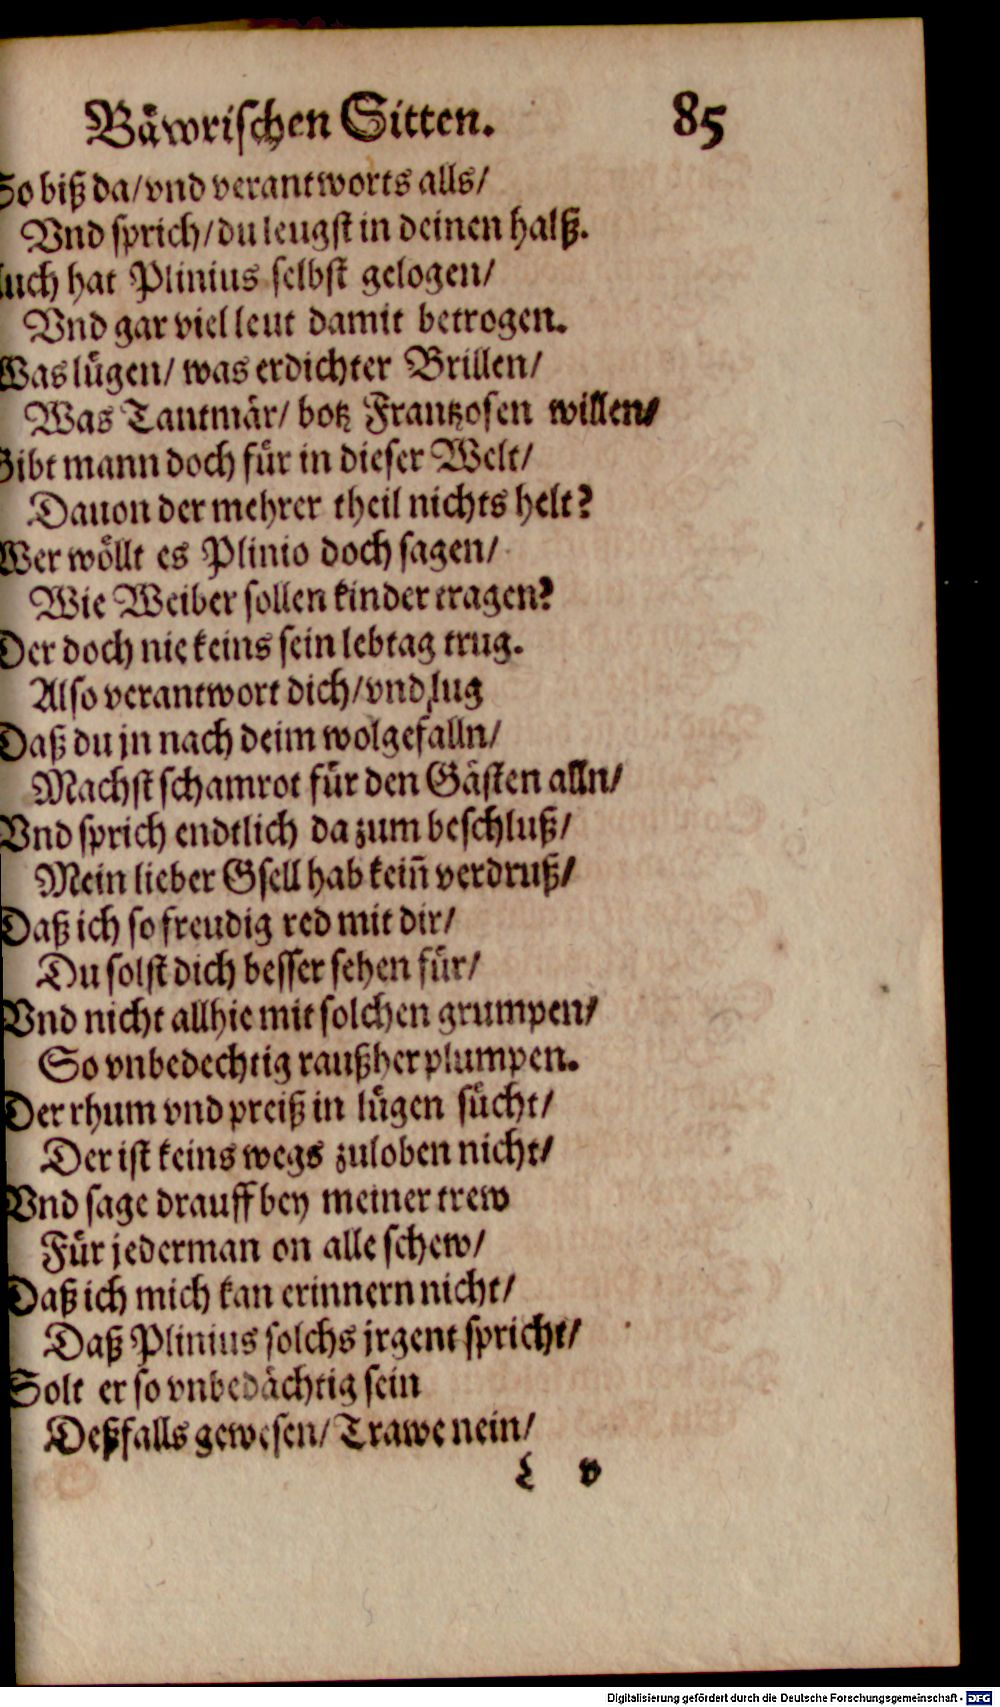 Bäwrischen Sitten. 85
So biß da/vnd verantworts alls/
Vnd sprich/du leugst in deinen halß.
Auch hat Plinius selbst gelogen/
Vnd gar viel leut damit betrogen.
Was lügen/ was erdichter Brillen/
Was Tantmär/ botz Frantzosen willen/
Gibt mann doch für in dieser Welt/
Dauon der mehrer theil nichts helt?
Wer wöllt es Plinio doch sagen/
Wie Weiber sollen kinder tragen?
Der doch nie keins sein lebtag trug.
Also verantwort dich/vnd lug
Daß du jn nach deim wolgefalln/
Machst schamrot für den Gästen alln/
Vnd sprich endtlich da zum beschluß/
Mein lieber Gsell hab kein̄ verdruß/
Daß ich so freudig red mit dir/
Du solst dich besser sehen für/
Vnd nicht allhie mit solchen grumpen/
So vnbedechtig raußher plumpen.
Der rhum vnd preiß in lügen sücht/
Der ist keins wegs zuloben nicht/
Vnd sage drauff bey meiner trew
Für jederman on alle schew/
Daß ich mich kan erinnern nicht/
Daß Plinius solchs jrgent spricht/
Solt er so vnbedächtig sein
Deßfalls gewesen/ Trawe nein/
L v
Digitalisierung gefördert durch die Deutsche Forschungsgemeinschaft - DFG